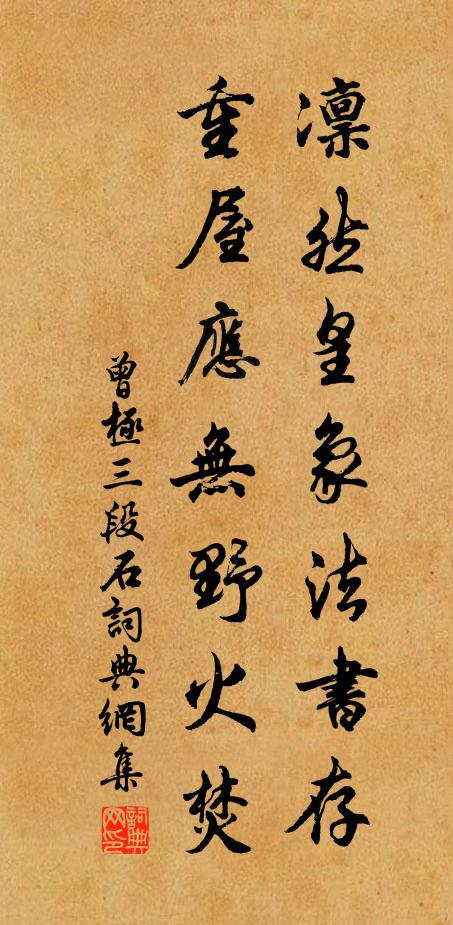 凜然皇象法書存
重屋應無野火焚
曾極三段石詞典網集
詞典网印